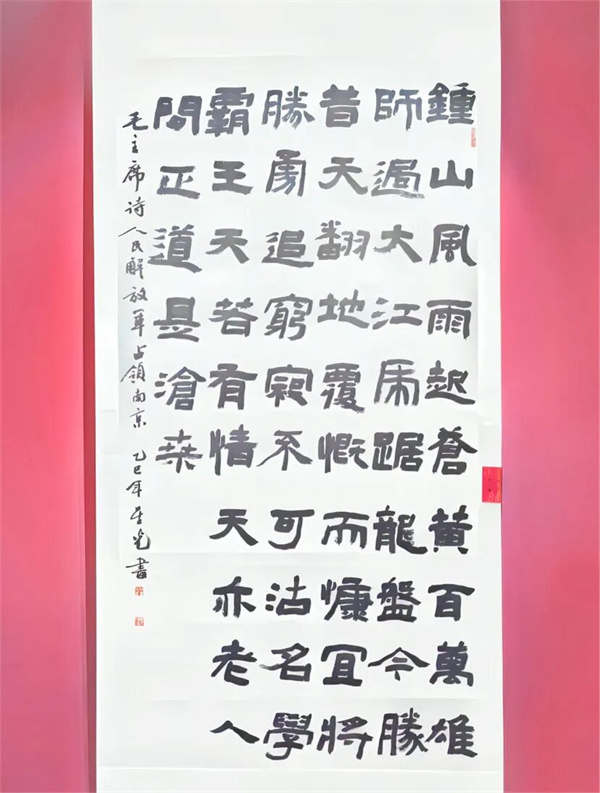 鍾山風雨起蒼黃百萬雄
師過大江虎踞龍盤今勝
昔天翻地覆慨而慷宜將
勝勇追窮寇不可沽名學
霸王天若有情天亦老人
間正道是滄桑
毛主席诗人民解放軍占領南京 乙巳年光書